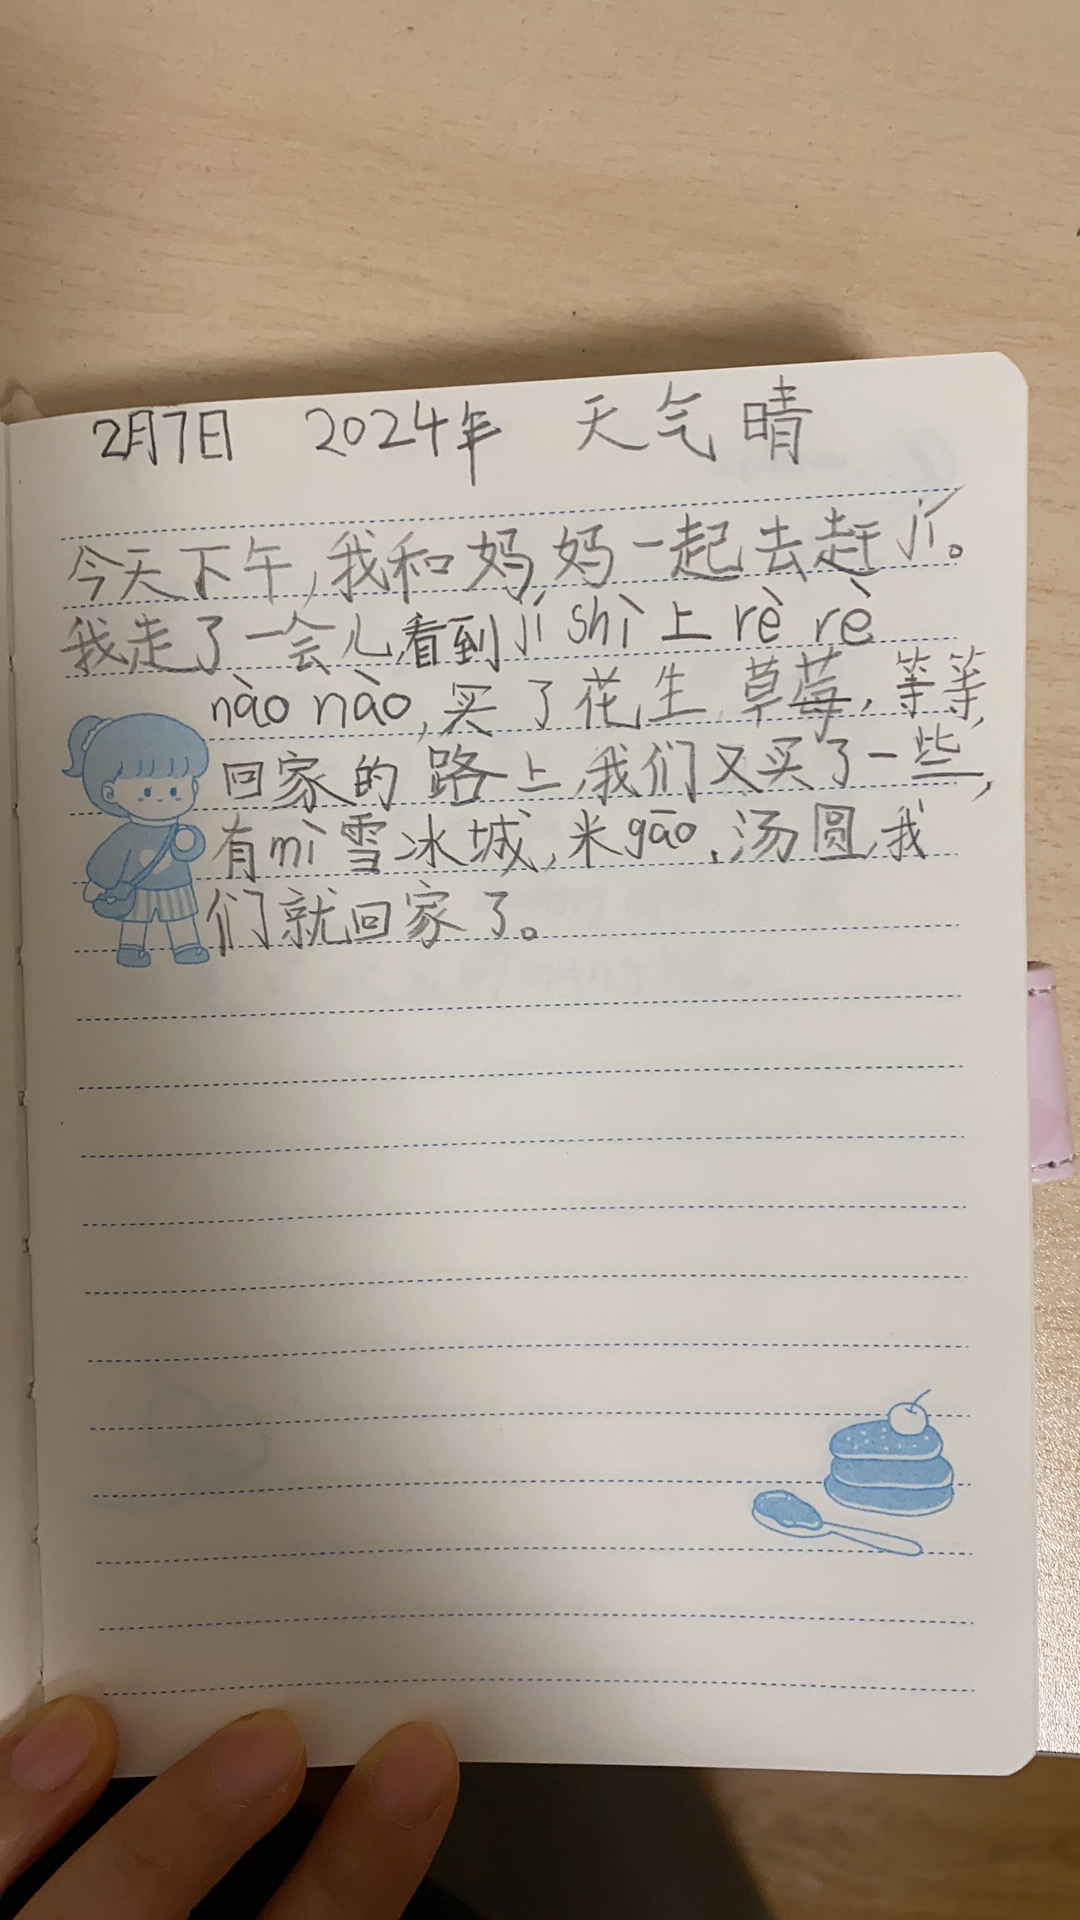 2月7日 2024年 天气晴
今天下午,我和妈妈一起去赶jí。
我走了一会儿看到jí shì上rè rè
nào nào,买了花生,草莓,等等,
回家的路上,我们又买了一些,
有mì雪冰城,米gāo,汤圆,我
们就回家了。